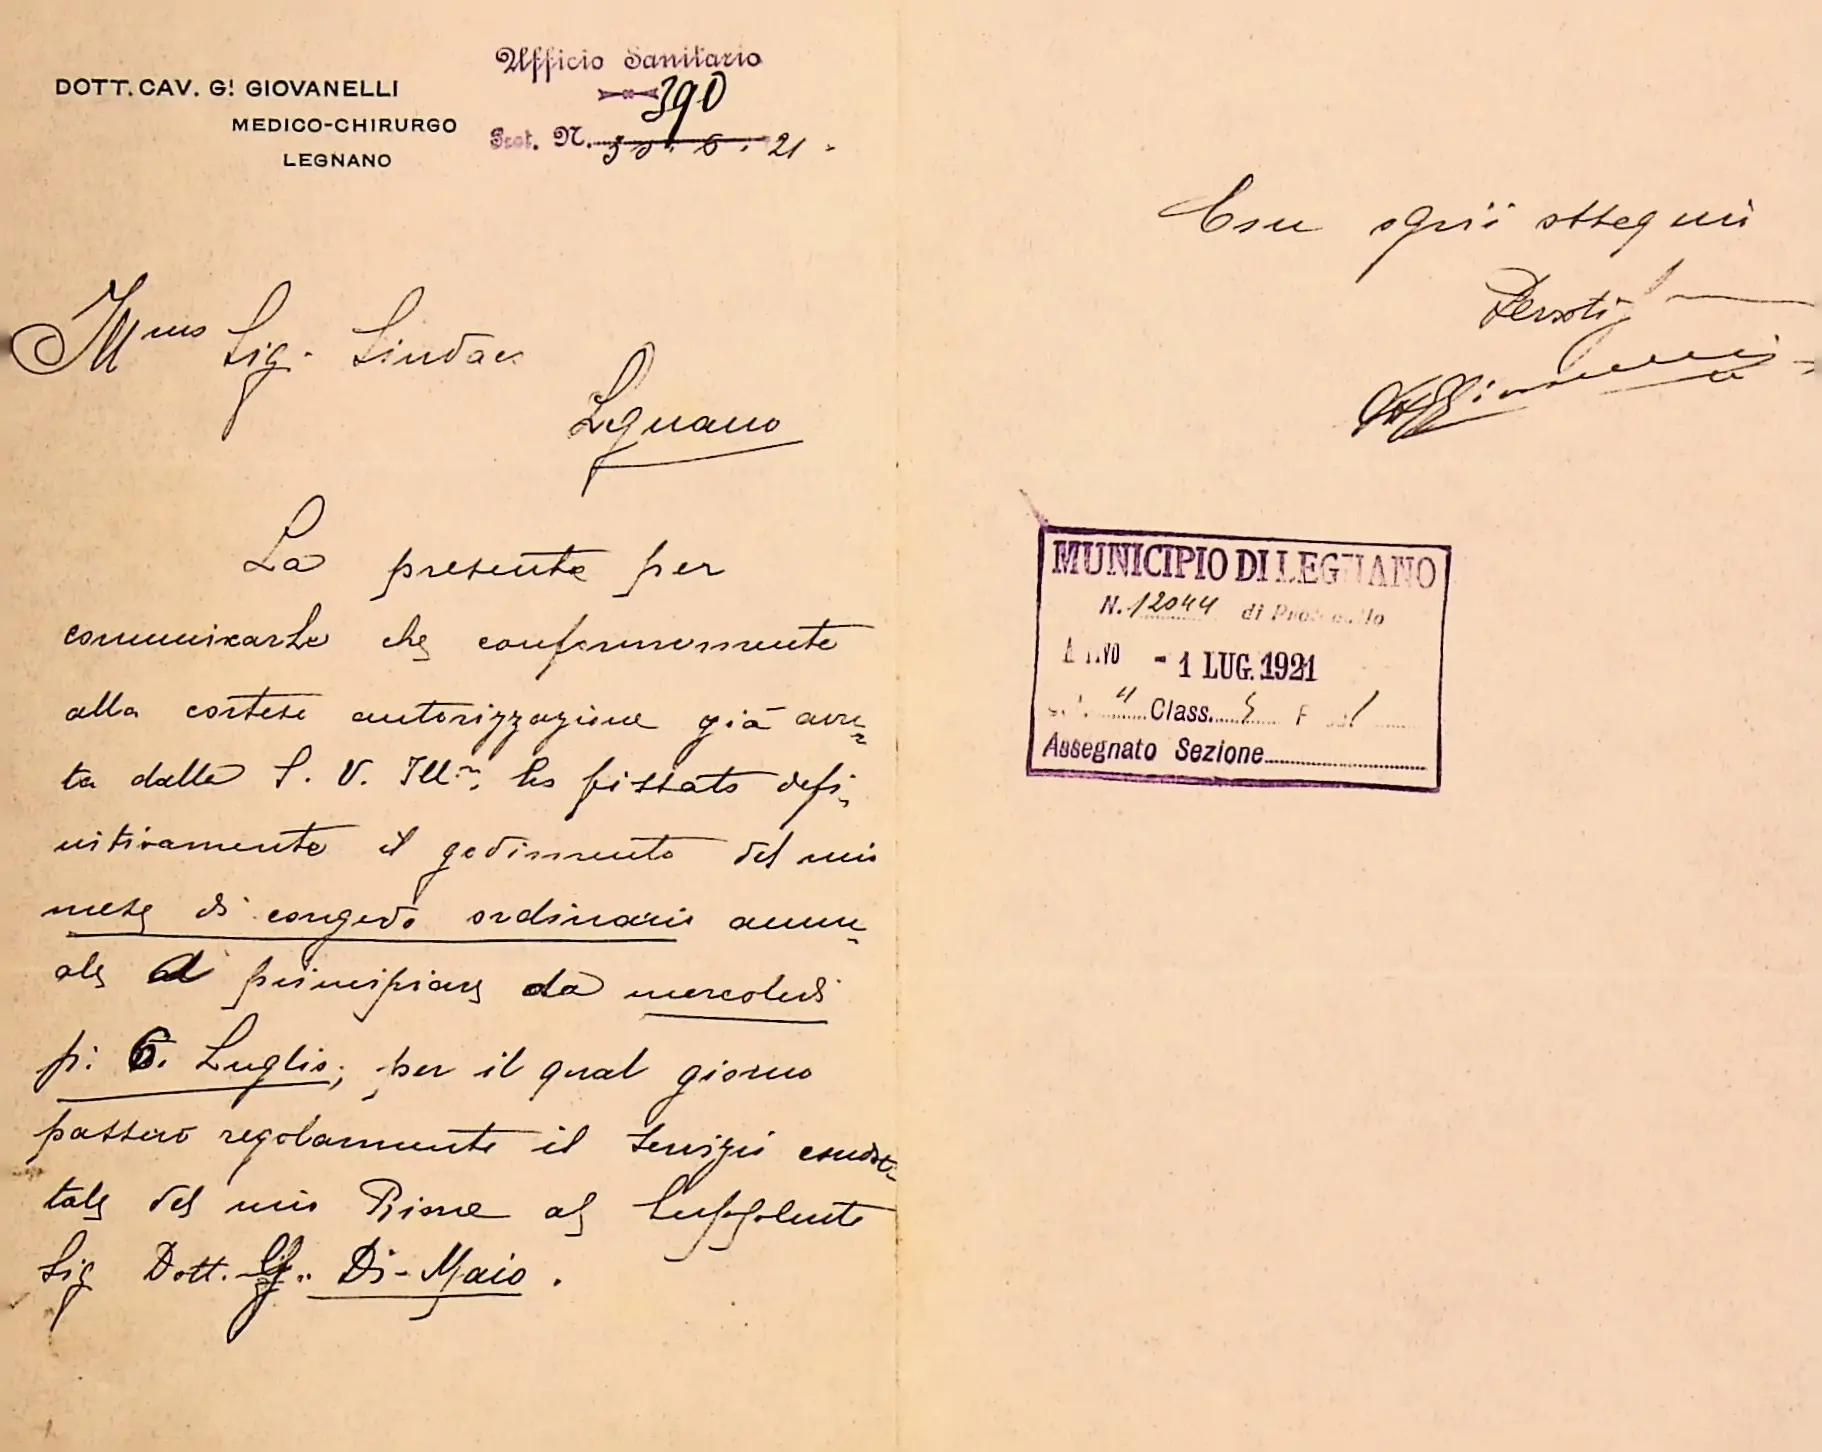 DOTT. CAV. G! GIOVANELLI
MEDICO-CHIRURGO
LEGNANO
Ufficio Sanitario
390
Prot. N. 30. 6. 21.
Ill.mo Sig. Sindaco
Legnano
La presente per
comunicarLe che conformemente
alla cortese autorizzazione già avu=
ta dalla S. V. Ill.ma, ho fissato defi=
nitivamente il godimento del mio
mese di congedo ordinario annu=
ale a principiare da mercoledì
p: 6. Luglio; per il qual giorno
passerò regolarmente il servizio condot=
tale del mio Rione al Supplente
Sig Dott. Di-Maio.
Con ogni ossequio
Devoti
Giovanelli
MUNICIPIO DI LEGNANO
N. 12044 di Protocollo
ARRIVO - 1 LUG. 1921
4 Class. 5 F 1
Assegnato Sezione